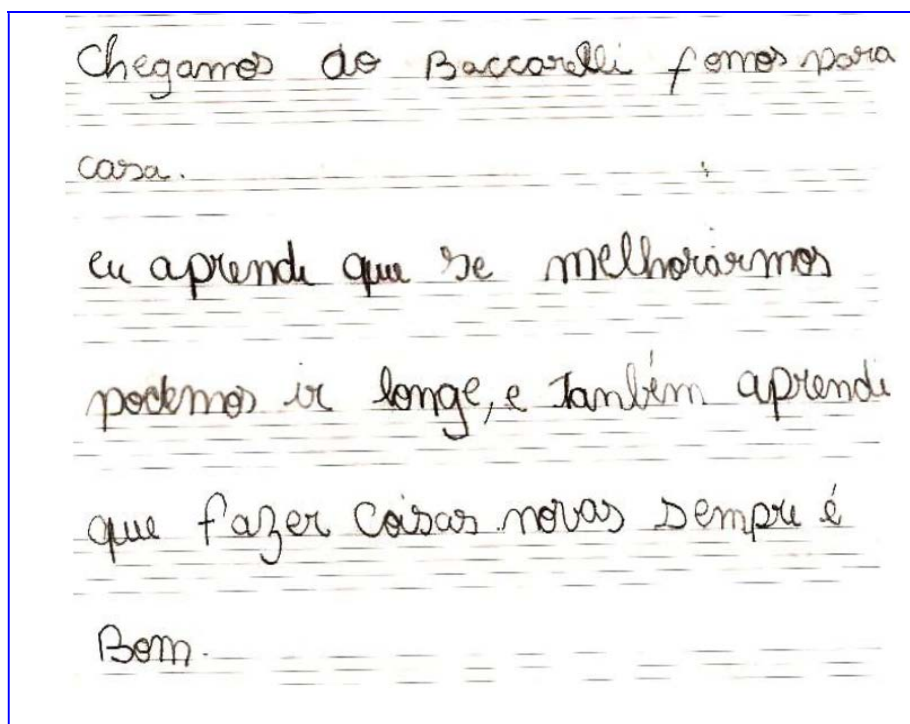 Chegamos do Baccarelli fomos para
casa.
eu aprendi que se melhorarmos
podemos ir longe, e Tanbém aprendi
que fazer coisas novas sempre é
Bom.